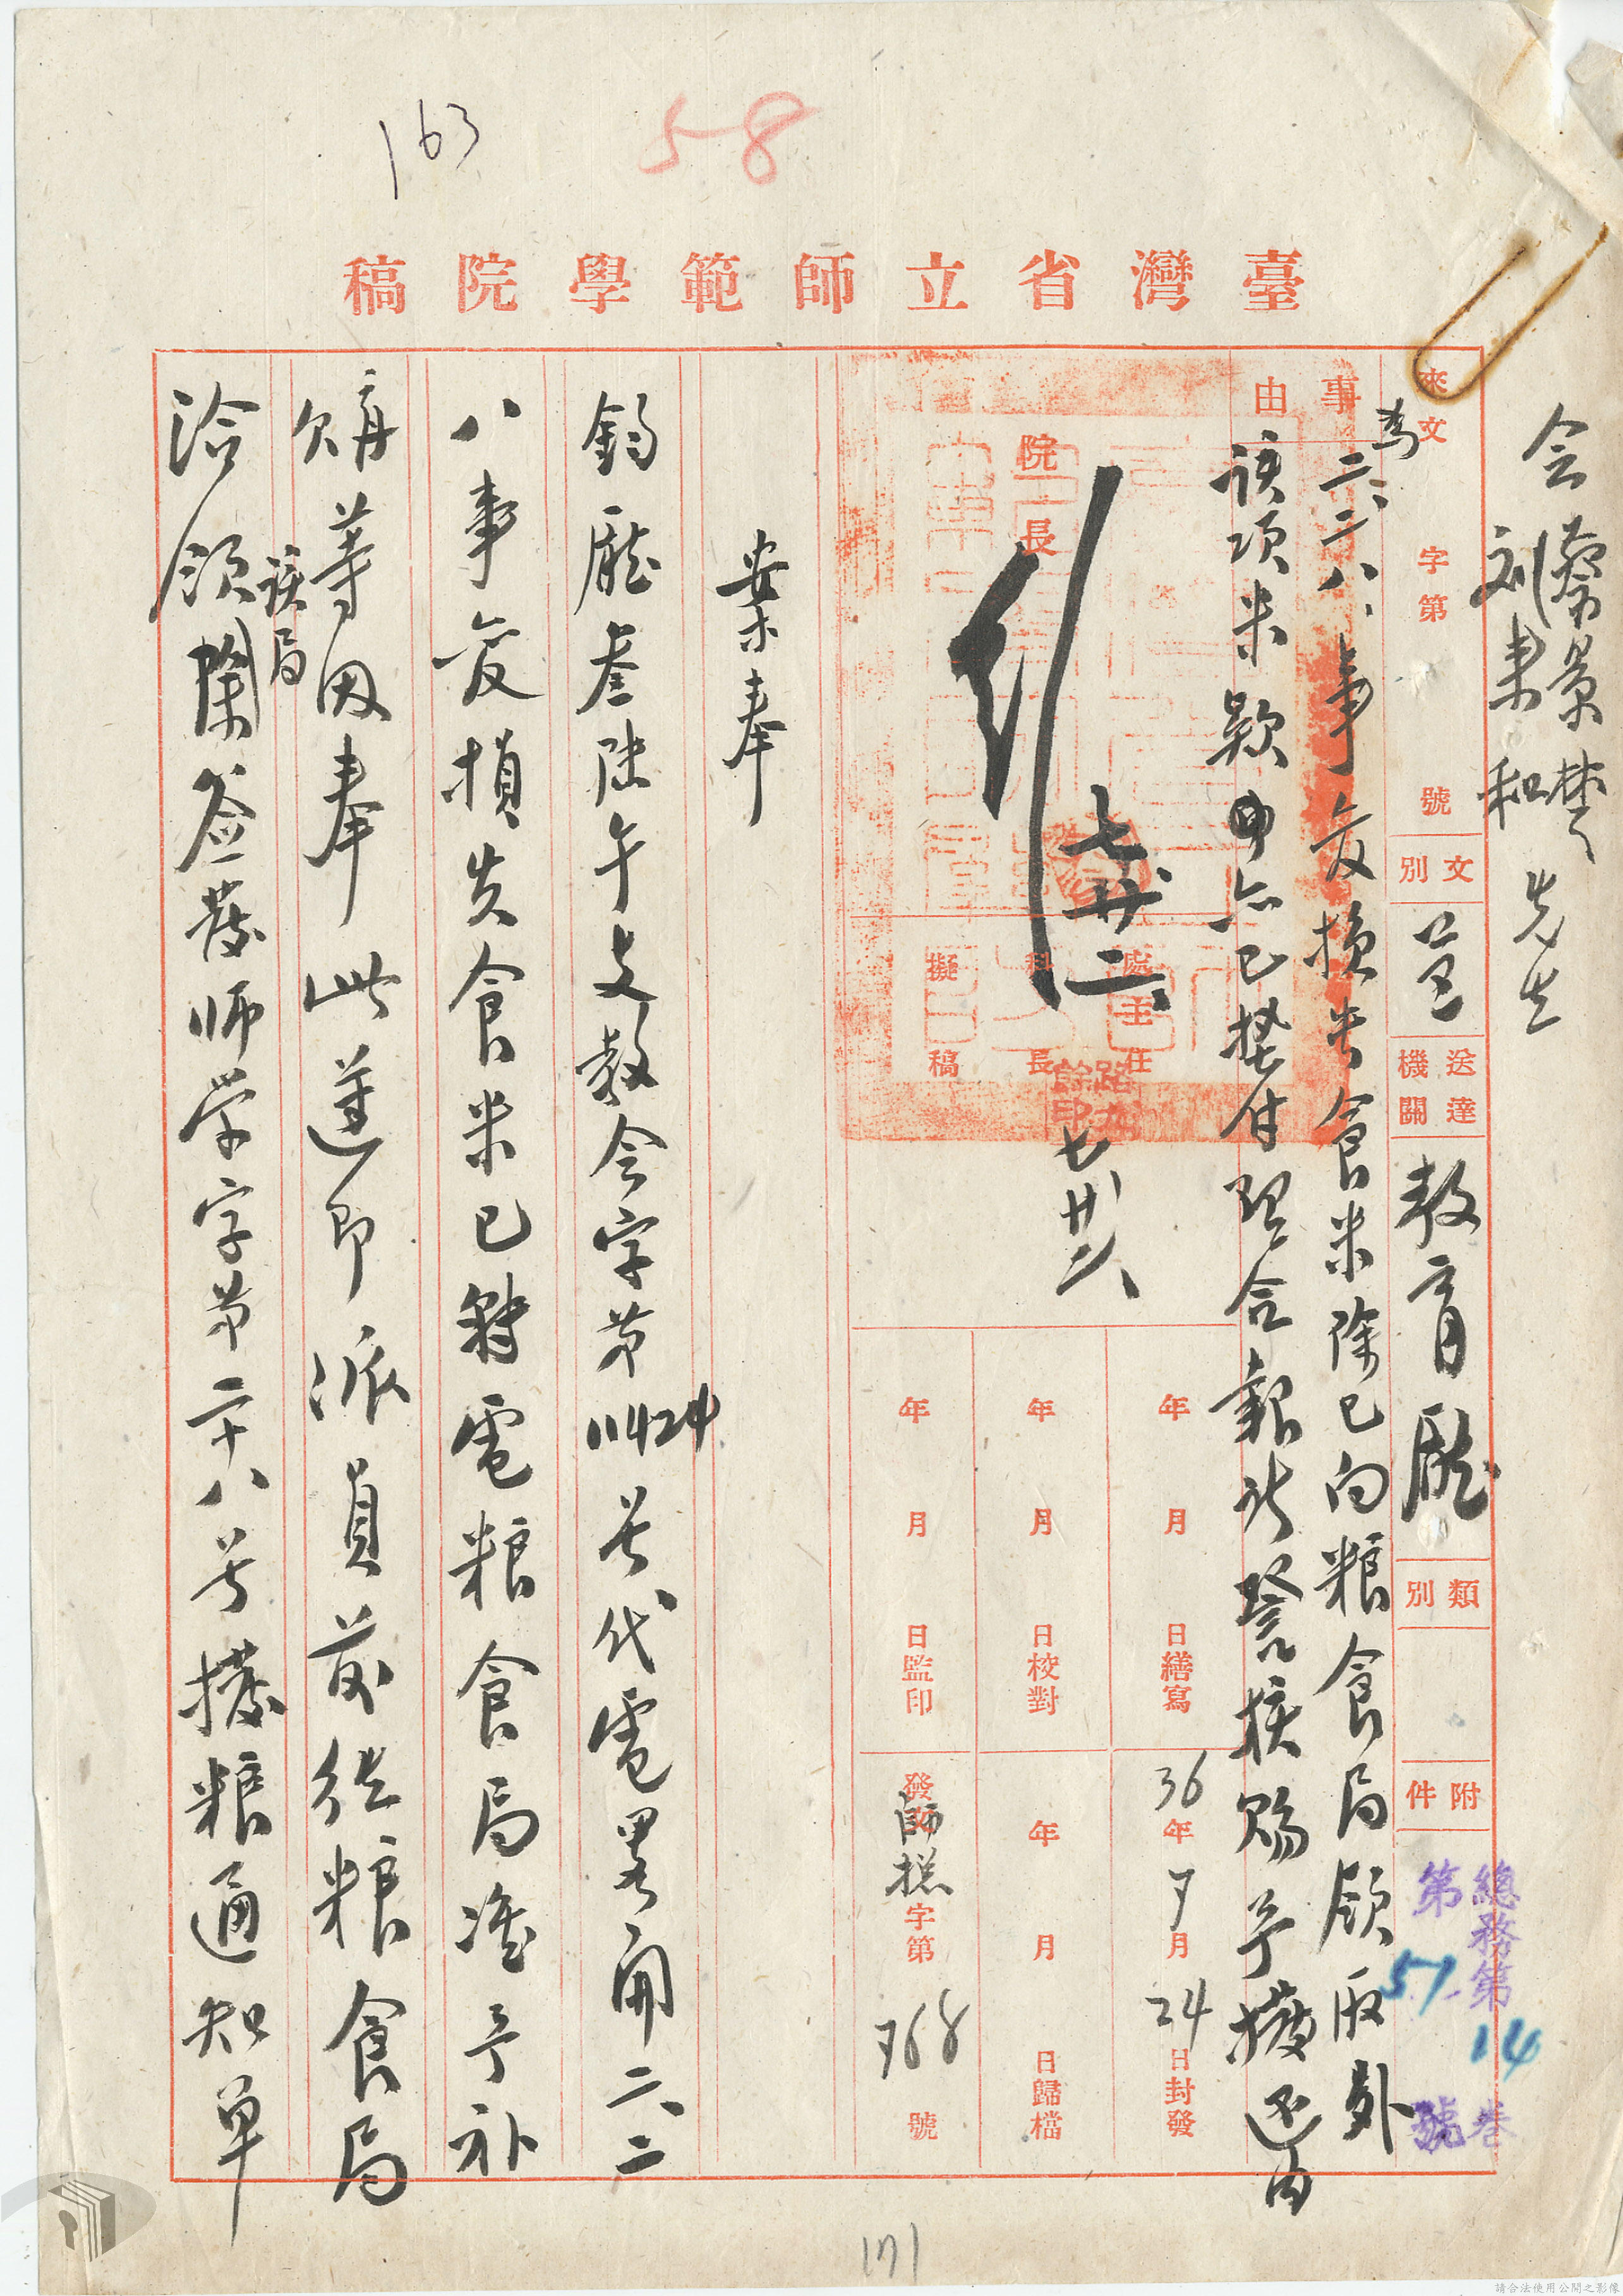 163
58
臺灣省立師範學院稿
会 蔡景楚 刘聿和 先生
來文 字第 號
文別 代電
送達機關 教育廳
類別
附件
總務第14卷
第57號
事由
為二、二八、事变損失食米除已向粮食局領取外
該項米款亦已墊付理合報請鑒核賜予撥還由
院長
七廿二
處主任
科長
擬稿
七廿二
年 月 日繕寫
年 月 日校對
年 月 日監印
36年7月24日封發
年 月 日歸檔
發文師總字第768號
案奉
鈞廳叁陸午支教会字第11424号代電畧開二、二
八事变損失食米已轉電粮食局准予补
購等因奉此遵即派員前往粮食局
洽領該局簽發师学字第二十八号撥粮通知单
171
請合法使用公開之影像